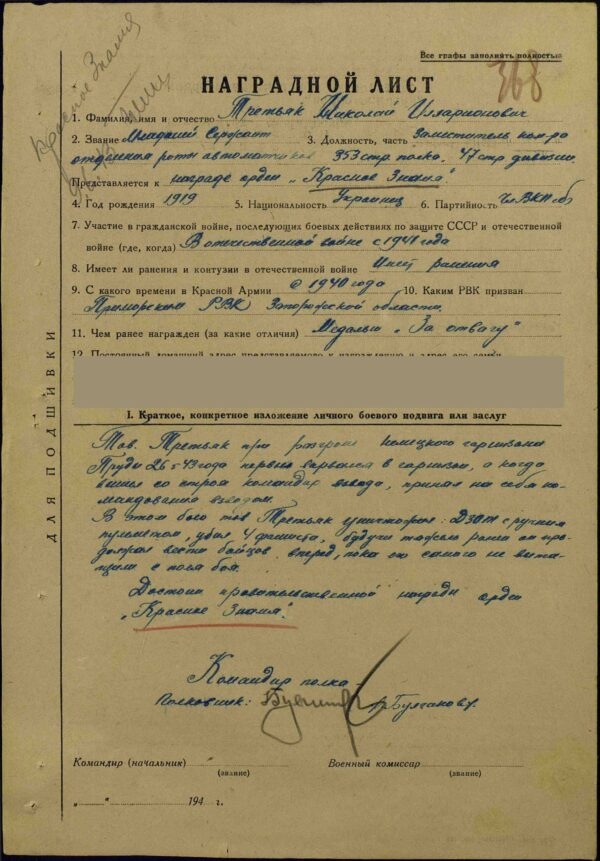 Все графы заполнять полностью
368
Красное Знамя
НАГРАДНОЙ ЛИСТ
1. Фамилия, имя и отчество Третьяк Николай Илларионович
2. Звание Младший Сержант 3. Должность, часть Заместитель ком-ра
отделения роты автоматчиков 353 стр. полка, 47 стр. дивизии
Представляется к награде орден „Красное Знамя"
4. Год рождения 1919 5. Национальность Украинец 6. Партийность Чл ВКП(б)
7. Участие в гражданской войне, последующих боевых действиях по защите СССР и отечественной
войне (где, когда) В отечественной войне с 1941 года
8. Имеет ли ранения и контузии в отечественной войне Имеет ранения
9. С какого времени в Красной Армии с 1940 года 10. Каким РВК призван
Приморским РВК Запорожской области.
11. Чем ранее награжден (за какие отличия) Медалью „За отвагу"
12. Постоянный домашний адрес представляемого к награждению и адрес его семьи
I. Краткое, конкретное изложение личного боевого подвига или заслуг
Тов. Третьяк при разгроме немецкого гарнизона
Пруды 26 5 43 года первым ворвался в гарнизон, а когда
вышел со строя командир взвода, принял на себя ко-
мандование взводом.
В этом бою тов Третьяк уничтожил: ДЗОТ с ручным
пулеметом, убил 4 фашиста, будучи тяжело ранен он про-
должал вести бойцов вперед, пока он самого не выта-
щили с поля боя.
Достоин правительственной награды орден
„Красное Знамя".
Командир полка -
Полковник: Булгаков
Командир (начальник)
(звание)
Военный комиссар
(звание)
„ " 194 г.
ДЛЯ ПОДШИВКИ